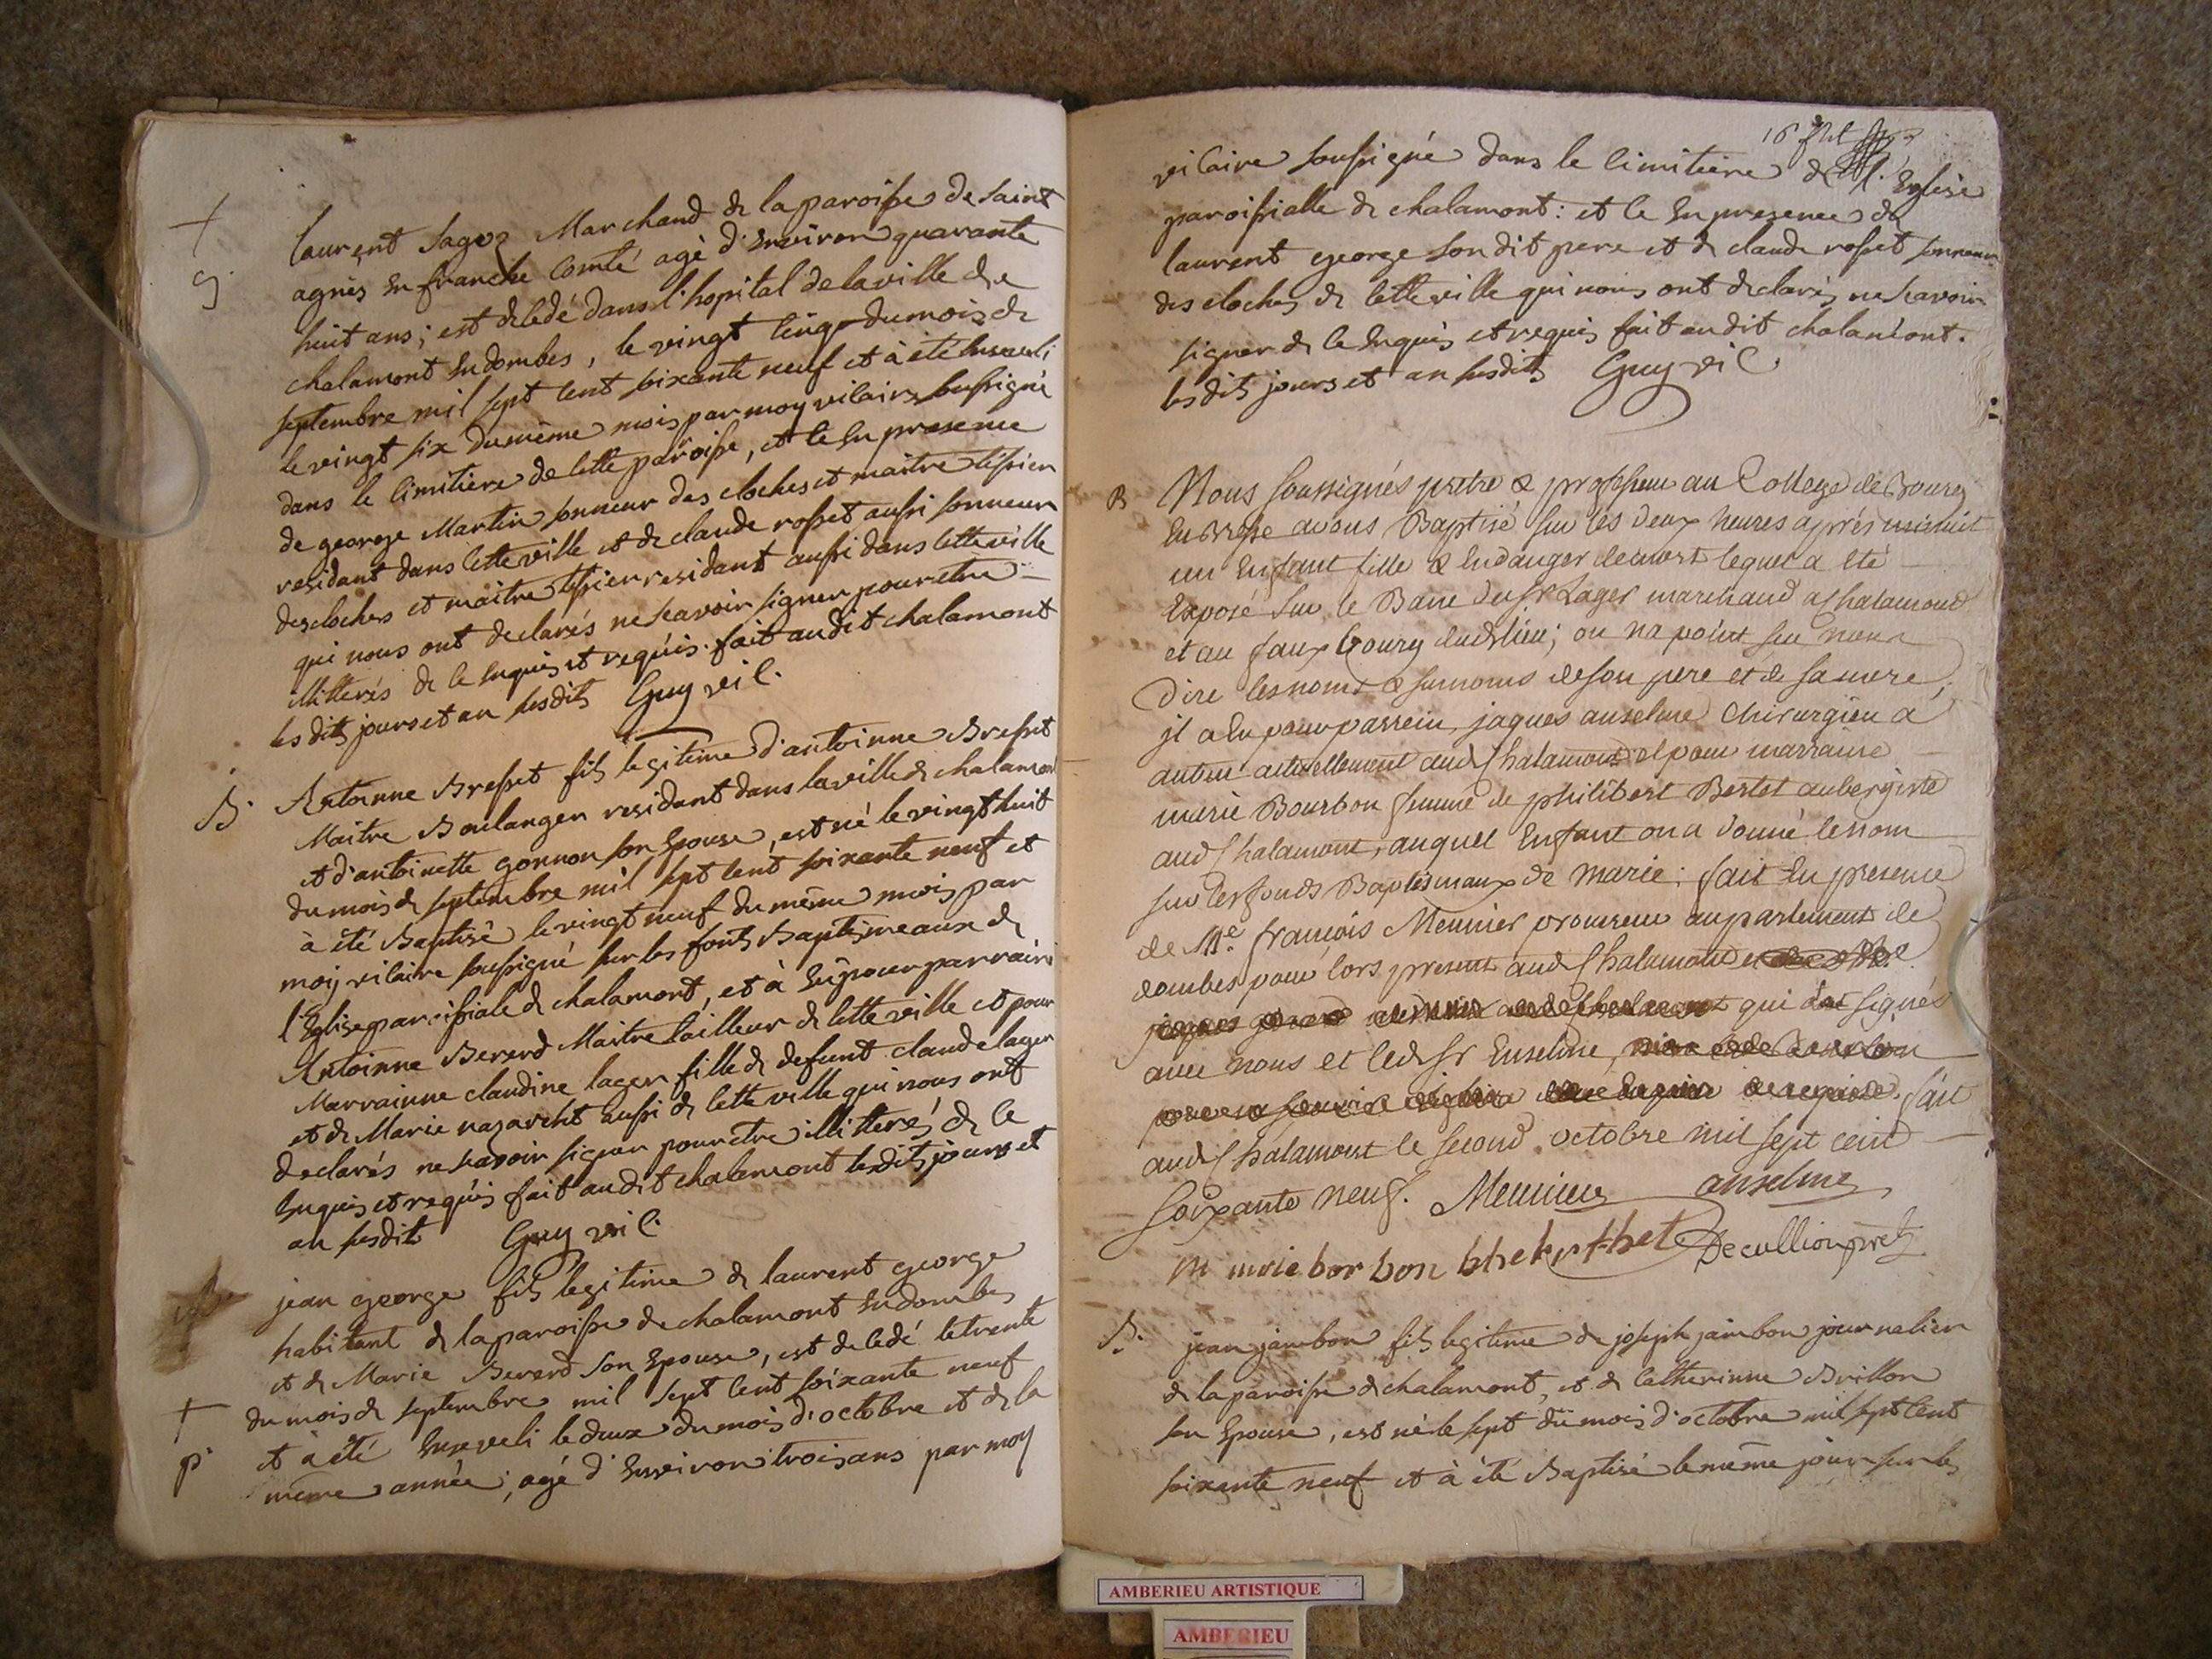 +
g
laurent sagoz Marchand de la paroisse de saint
agnès En franche Comté agè d'Environ quarante
huit ans; est decedé dans l'hopital de la ville de
chalamont En dombes, le vingt cinq du mois de
septembre mil sept cent soixante neuf et à été Enseveli
le vingt six du même mois par moy vicaire soussigné
dans le cimitiere de cette paroisse, et ce En presence
de george Martin sonneur des cloches et maitre tissier
residant dans cette ville et de claude rosset aussi sonneur
des cloches et maitre tissier residant aussi dans cette ville
qui nous ont declarés ne scavoir signer pour etre
illitterés de ce Enquis et requis. fait au dit chalamont
les dits jours et an susdits Guy vic.
B.
Antoinne Bresset fils legitime d'antoinne Bresset
Maitre Boulanger residant dans la ville de chalamont
et d'antoinette gonnon son Epouse, est né le vingt huit
du mois de septembre mil sept cent soixante neuf et
à été Baptisé le vingt neuf du même mois par
moy vicaire soussigné sur les fonts Baptismeaux de
l'Eglise paroissiale de chalamont, et à Eu pour parrain
Antoinne Bererd Maitre tailleur de cette ville et pour
Marrainne claudine lager fille de defunt claude lager
et de Marie nazareht aussi de cette ville qui nous ont
declarés ne scavoir signer pour etre illitterés de ce
Enquis et requis fait au dit chalamont les dits jours et
an susdits Guy vic.
jean george fils legitime de laurent george
habitant de la paroisse de chalamont En dombes
et de Marie Bererd son Epouse, est decedé le trente
+
du mois de septembre mil sept cent soixante neuf
et à été Enseveli le deux du mois d'octobre et de la
p.
même année, agé d'Environ trois ans par moy
16
vicaire soussigné dans le cimitiere de l'Eglise
paroissialle de chalamont: et ce En presence de
laurent george son dit pere et de claude rosset sonneur
des cloches de cette ville qui nous ont declarés ne scavoir
signer de ce Enquis et requis fait au dit chalamont.
les dits jours et an susdits Guy vic
B
Nous soussignés pretre & professeur au College de Bourg
En Bresse avons Baptisé sur les deux heures après minuit
un Enfant fille & En danger de mort lequel a eté
Exposé sur le Banc du sr Lager marchand a chalamond
et au faux bourg dud lieu; on na point seu nous
Dire les noms & surnoms de son pere et de sa mere,
jl a Eu pour parrein jaques anselme Chirurgien a
actuellement aud Chalamont et pour marraine
marie Bourbon femme de philibert Bertet aubergiste
aud Chalamont, auquel Enfant on a donné le nom
sur les fonds Baptismaux de Marie: fait En presence
de Me françois Meunier procureur au parlement de
dombes pour lors present aud Chalamond et
qui ont signés
avec nous et led sr Enselme
fait
aud Chalamont le second octobre mil sept cent
soixante neuf. Meunier anselme
m marie bor bon Decullion pretre
B.
jean jambon fils legitime de joseph jambon journalier
de la paroisse de chalamont, et de Catherinne Brillon
son Epouse, est né le sept du mois d'octobre mil sept cent
soixante neuf et à été Baptisé le même jour sur les
AMBERIEU ARTISTIQUE
AMBERIEU